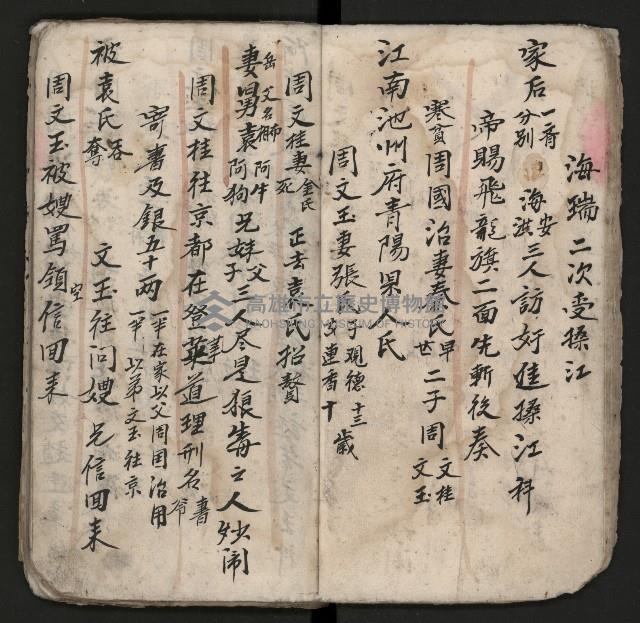 海瑞二次受操江
家后 一齊 分别 海安 海洪 三人訪奸進操江科
帝賜飛龍旗二面先斬後奏
寒貧 周國治妻秦氏早世 二子周 文桂 文玉
江南池州府青陽県人民
周文玉妻張 子观德十三 女連香十 歲
周文桂妻金氏死 正去袁氏招贅
岳父名獅 妻舅袁 阿牛 阿狗 兄妹父子三人尽是狼毒之人妙闹
周文桂往京都在登萊道理刑名書爷
寄書及銀五十两 一半在家以父周国治用 一半以弟文玉往京
被袁氏吞奪 文玉往问嫂 兄信回来
周文玉被嫂罵領空信回来
高雄市立歷史博物館
KAOHSIUNG MUSEUM OF HISTORY